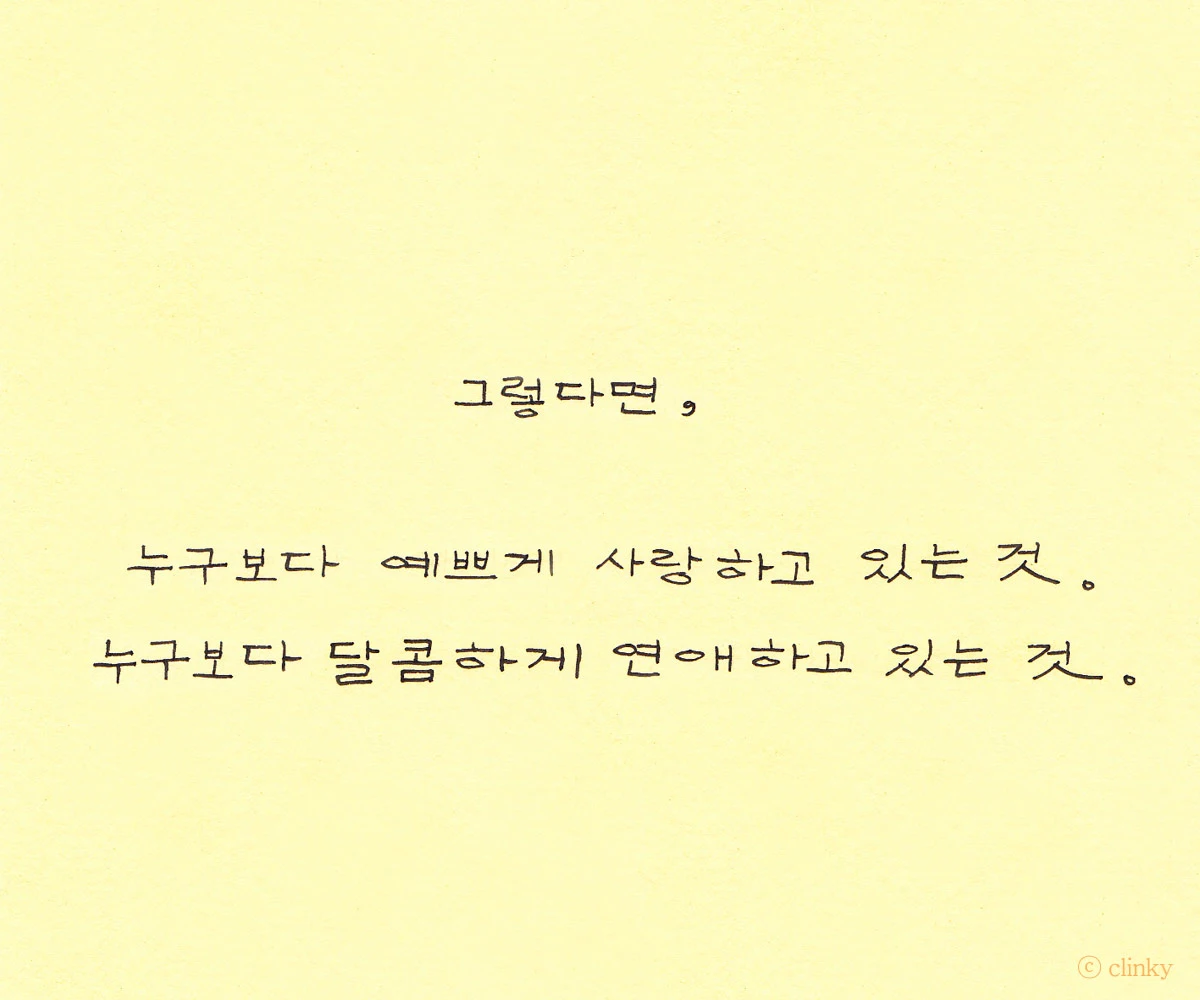 그렇다면,
누구보다 예쁘게 사랑하고 있는 것.
누구보다 달콤하게 연애하고 있는 것.
ⓒ clinky